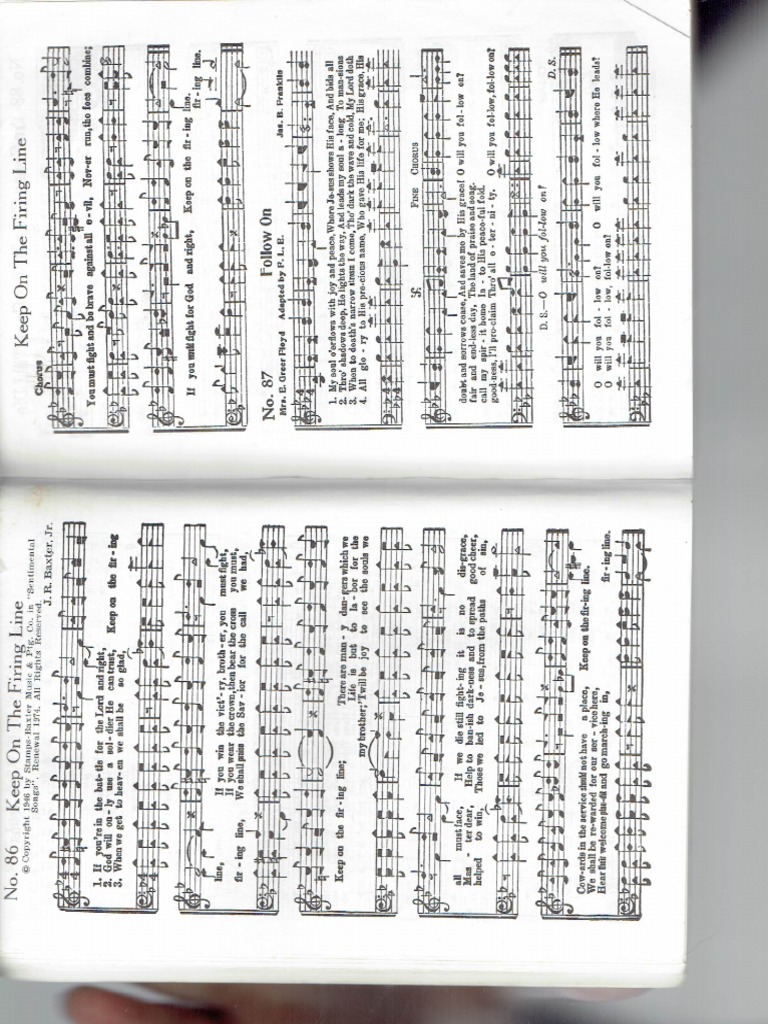 No. 86 Keep On The Firing Line
© Copyright 1946 by Stamps-Baxter Music & Ptg. Co. in "Sentimental
Songs". Renewal 1974. All Rights Reserved.
J. R. Baxter, Jr.
1. If you're in the bat-tle for the Lord and right,
2. God will on-ly use a sol-dier He can trust,
3. When we get to heav-en we shall be so glad,
Keep on the fir-ing
line,
fir-ing line,
If you win the vict'-ry, broth-er, you must fight,
If you wear the crown, then bear the cross you must,
We shall praise the Sav-ior for the call we had,
Keep on the fir-ing line;
There are man-y dan-gers which we
Life is but to la-bor for the
my brother; 'Twill be joy to see the souls we
all must face, If we die still fight-ing it is no dis-grace,
Mas-ter dear, Help to ban-ish dark-ness and to spread good cheer,
helped to win, Those we led to Je-sus, from the paths of sin,
Cow-ards in the service will not have a place,
We shall be re-warded for our ser-vice here,
Hear welcome and go march-ing in,
Keep on the fir-ing line.
fir-ing line.
Keep On The Firing Line
Chorus
You must fight and be brave against all e-vil, Nev-er run, the foes combine;
If you would fight for God and right, Keep on the fir-ing line.
fir-ing line.
No. 87 Follow On
Mrs. E. Greer Floyd Adapted by F. L. E. Jas. B. Franklin
1. My soul o'erflows with joy and peace, Where Je-sus shows His face, And bids all
2. Thro' shadows deep, He lights the way, And leads my soul a-long To man-sions
3. When to death's narrow stream I come, Tho' dark the wave and cold, My Lord doth
4. All glo-ry to His pre-cious name, Who gave His life for me; His grace, His
FINE CHORUS
doubt and sorrows cease, And saves me by His grace! O will you fol-low on?
fair and end-less day, The land of praise and song.
call my spir-it home In-to His peace-ful fold.
good-ness, I'll pro-claim Thro' all e-ter-ni-ty. O will you fol-low, fol-low on?
D. S.—O will you fol-low on?
D. S.
O will you fol-low on? O will you fol-low where He leads?
O will you fol-low, fol-low on?